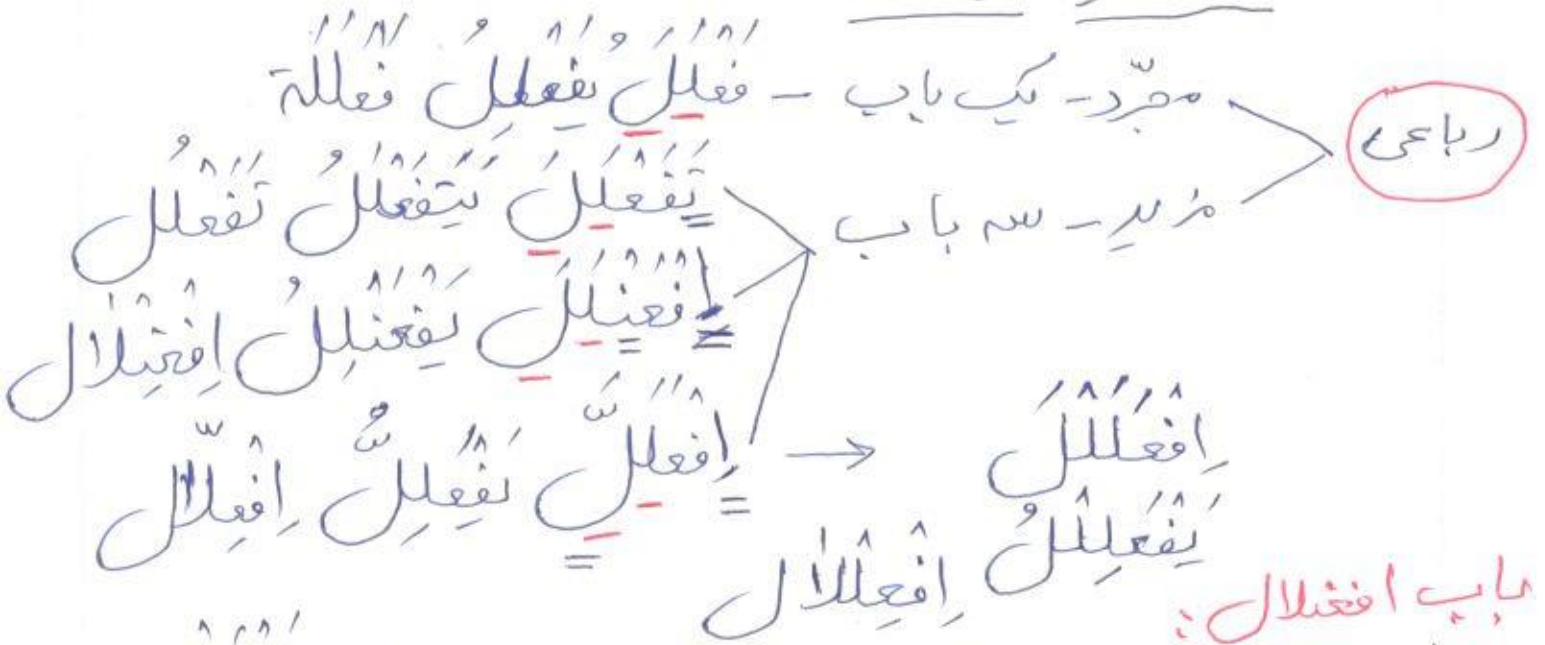 رباعی
مجرّد - یک باب - فَعْلَلَ يُفَعْلِلُ فَعْلَلَة
مزید - سه باب
تَفَعْلَلَ يَتَفَعْلَلُ تَفَعْلُل
اِفْعَنْلَلَ يَفْعَنْلِلُ اِفْعِنْلال
اِفْعَلَلَّ يَفْعَلِلُّ اِفْعِلّال → اِفْعَلْلَلَ
يَفْعَلْلِلُ اِفْعِلْلال
باب افعنلال: